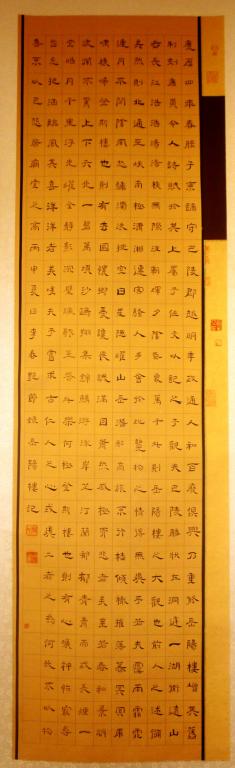 慶曆四年春滕子京謫守巴陵郡越明年政通人和百廢俱興乃重修岳陽樓增其舊
制刻唐賢今人詩賦於其上屬予作文以記之予觀夫巴陵勝狀在洞庭一湖銜遠山
吞長江浩浩湯湯橫無際涯朝暉夕陰氣象萬千此則岳陽樓之大觀也前人之述備
矣然則北通巫峽南極瀟湘遷客騷人多會於此覽物之情得無異乎若夫霪雨霏霏
連月不開陰風怒號濁浪排空日星隱曜山岳潛形商旅不行檣傾楫摧薄暮冥冥虎
嘯猿啼登斯樓也則有去國懷鄉憂讒畏譏滿目蕭然感極而悲者矣至若春和景明
波瀾不驚上下天光一碧萬頃沙鷗翔集錦鱗游泳岸芷汀蘭郁郁青青而或長煙一
空皓月千里浮光耀金靜影沉璧漁歌互答此樂何極登斯樓也則有心曠神怡寵辱
皆忘把酒臨風其喜洋洋者矣嗟夫予嘗求古仁人之心或異二者之為何哉不以物
喜不以己悲居廟堂之高丙申夏日李春艷節錄岳陽樓記